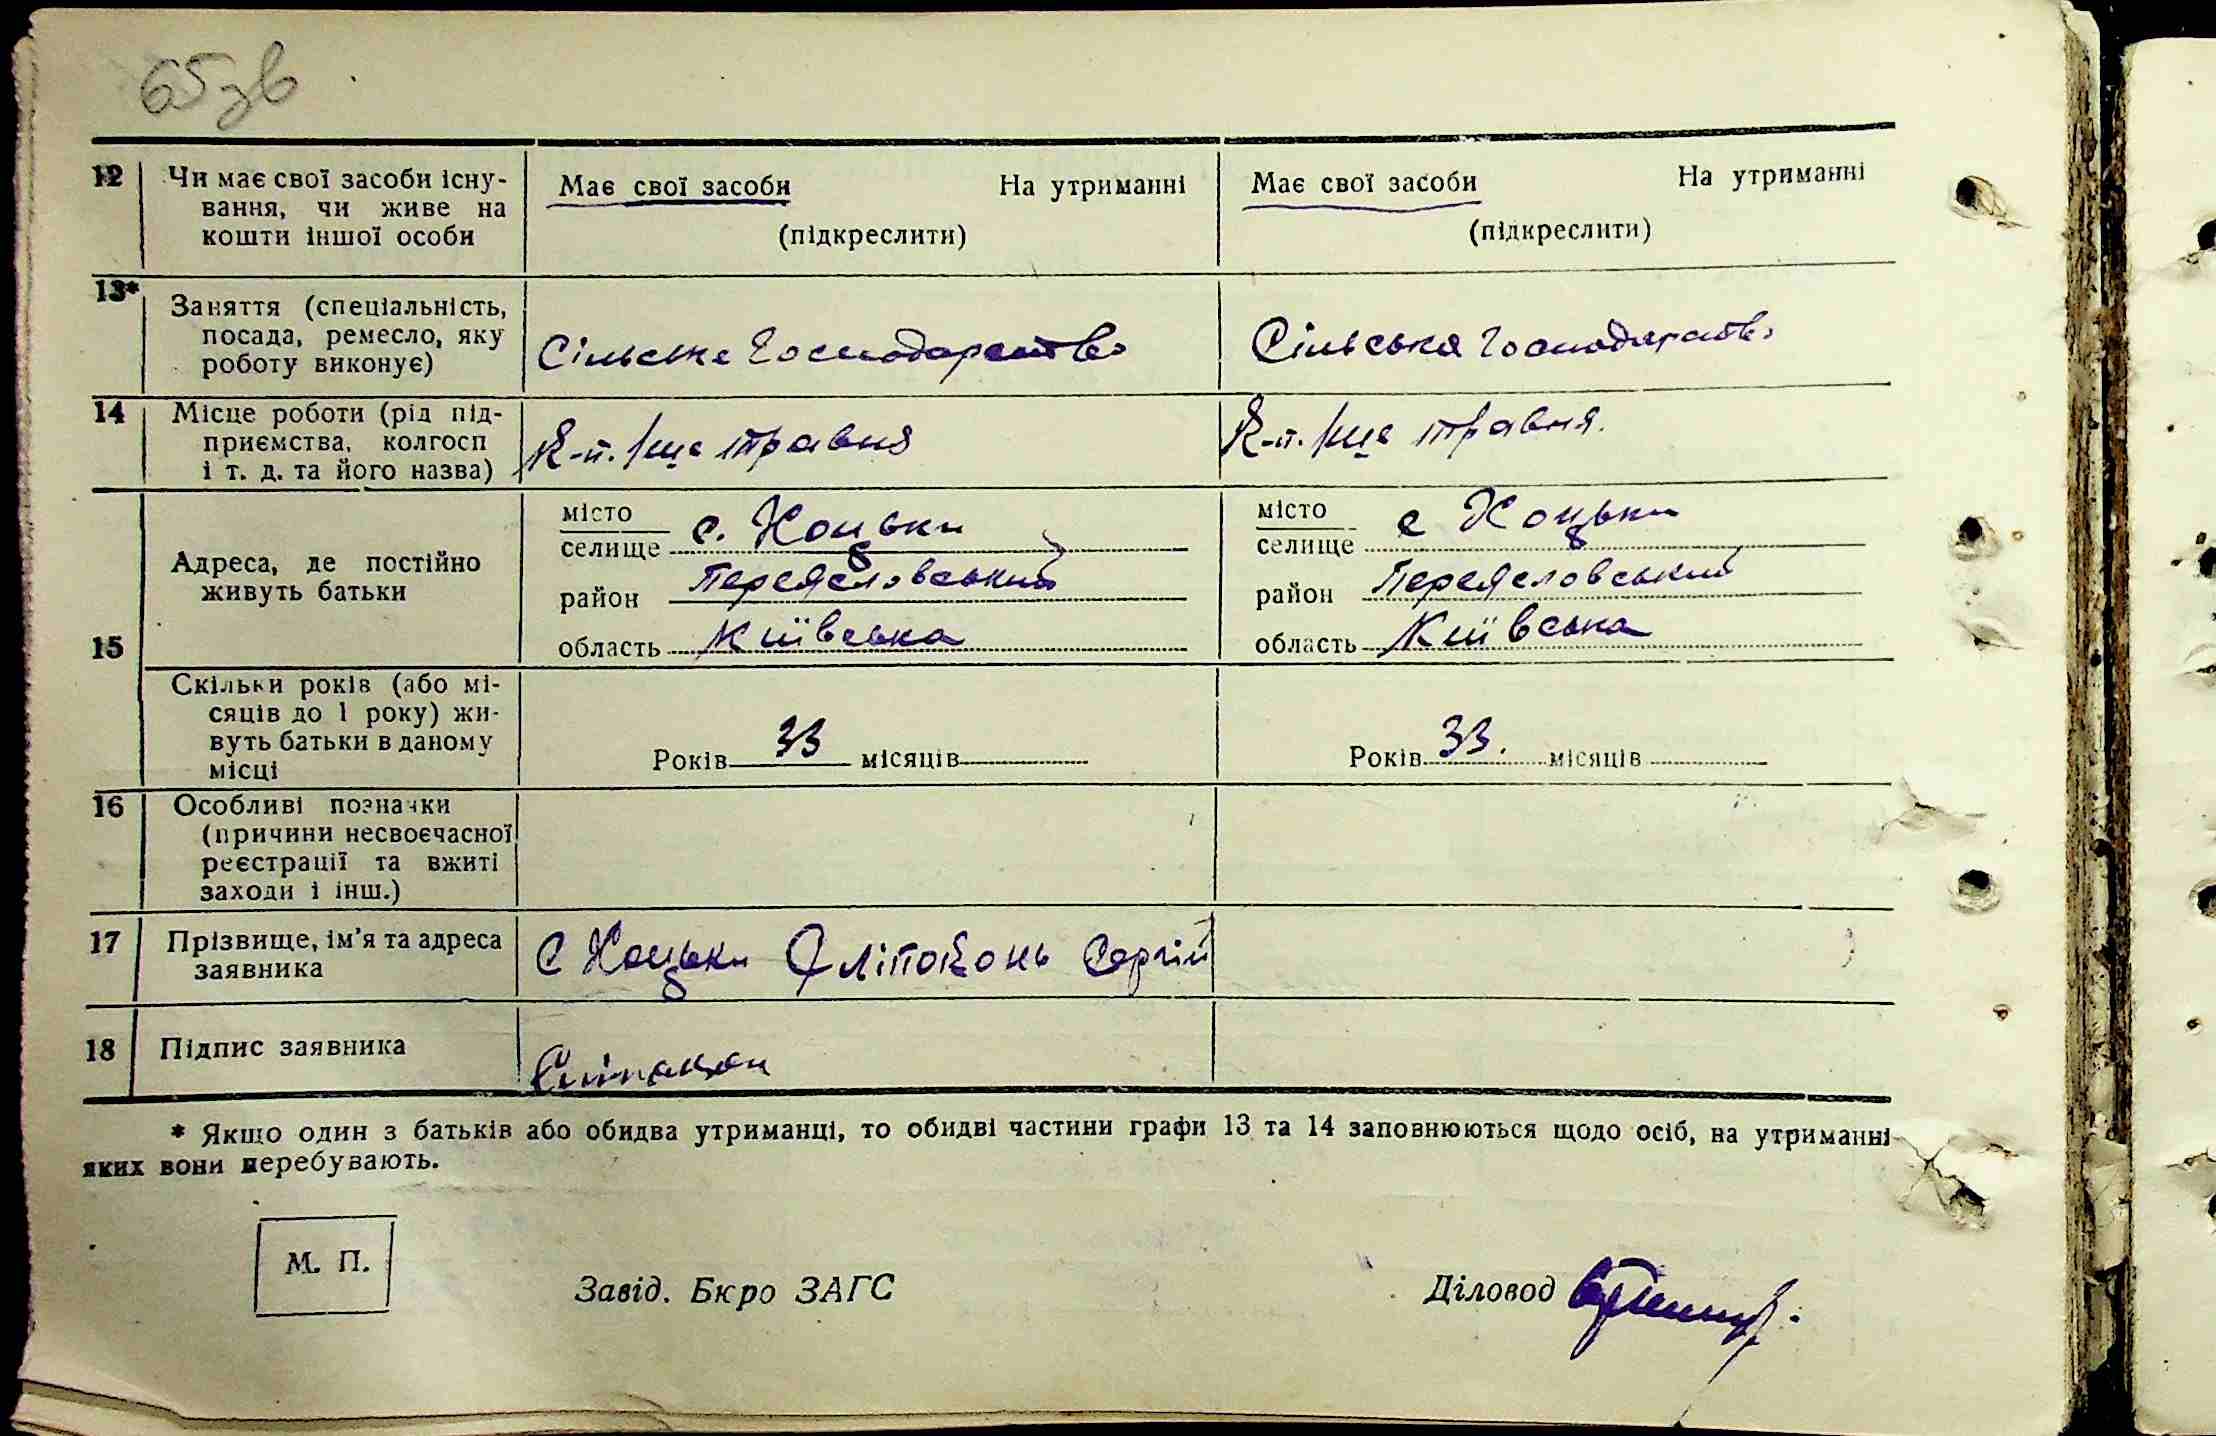 65зв
12 Чи має свої засоби існу-
вання, чи живе на
кошти іншої особи
Має свої засоби На утриманні
(підкреслити)
Має свої засоби На утриманні
(підкреслити)
13* Заняття (спеціальність,
посада, ремесло, яку
роботу виконує)
Сільське Господарство
Сільське Господарство
14 Місце роботи (рід під-
приємства, колгосп
і т. д. та його назва)
К-п. 1ше травня
К-п. 1ше травня.
15 Адреса, де постійно
живуть батьки
місто
селище с. Хоцьки
район Переясловський
область Київська
місто
селище с Хоцьки
район Переясловський
область Київська
Скільки років (або мі-
сяців до 1 року) жи-
вуть батьки в даному
місці
Років 33 місяців
Років 33. місяців
16 Особливі позначки
(причини несвоєчасної
реєстрації та вжиті
заходи і інш.)
17 Прізвище, ім'я та адреса
заявника
с Хоцьки Сліпоконь Сергій
18 Підпис заявника
* Якщо один з батьків або обидва утриманці, то обидві частини графи 13 та 14 заповнюються щодо осіб, на утриманні
яких вони перебувають.
М. П.
Завід. Бюро ЗАГС
Діловод